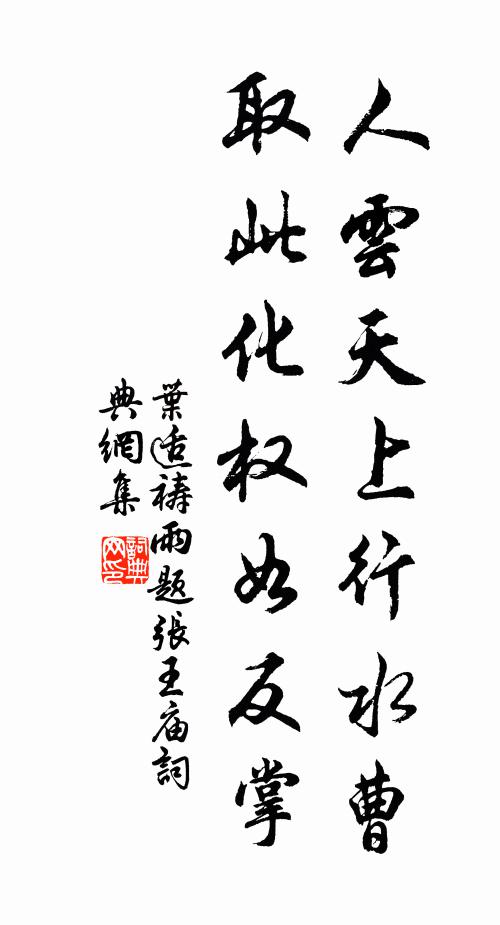 人雲天上行水曹
取此化权如反掌
葉适祷雨题張王庙詞
典網集
詞典网印